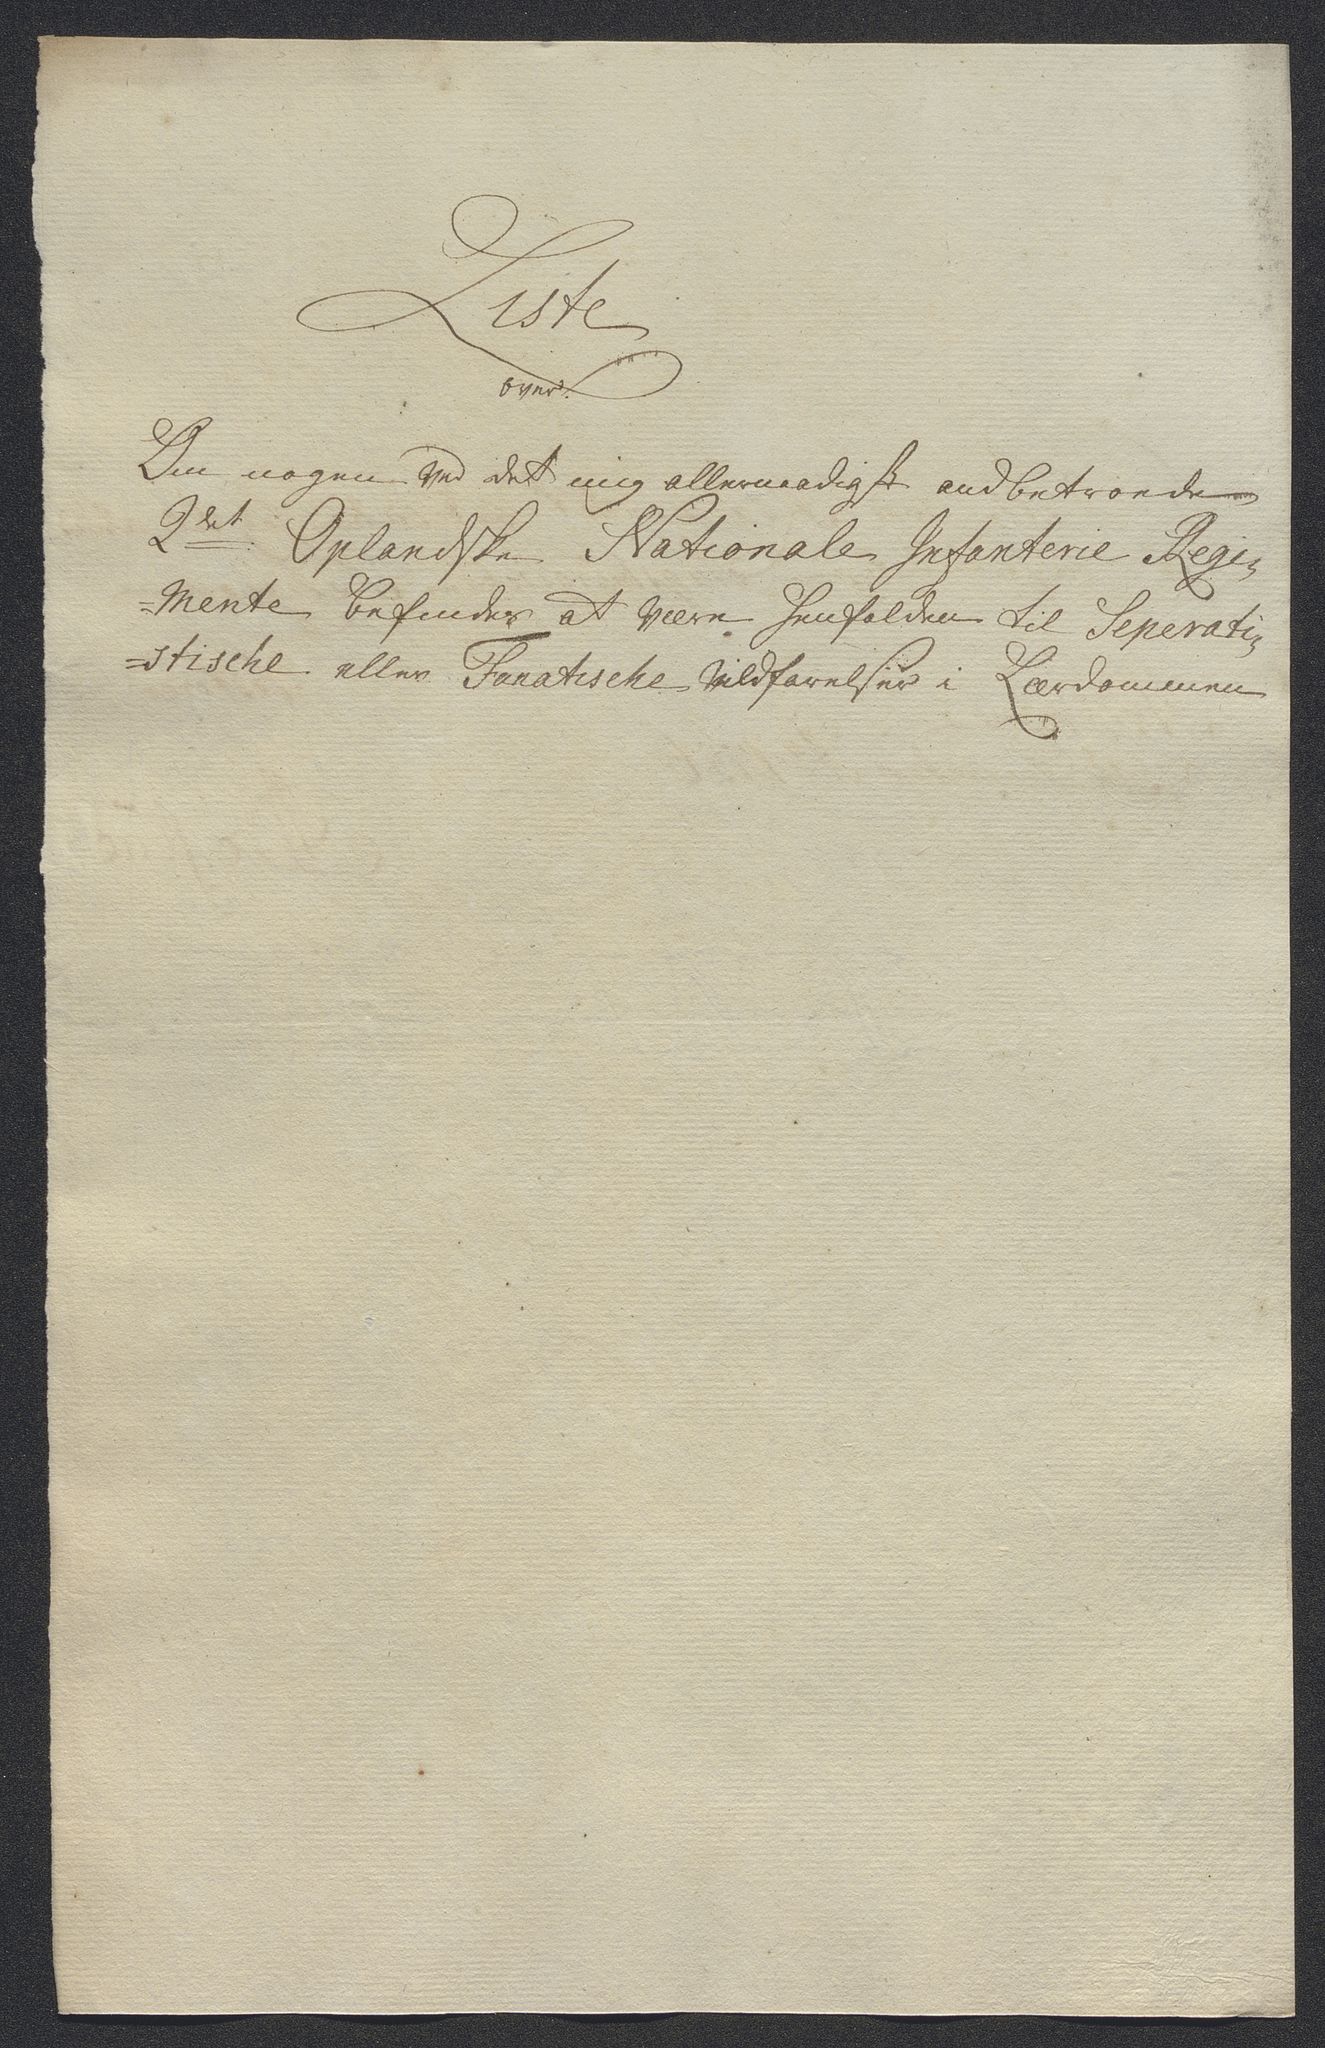 Liste
over.
Om nogen ved det mig allernaadigst andbetroede
2det Oplandske Nationale Infanterie Regi-
=mente befindes at være henfalden til Seperati-
=stische eller Fanatische Vildfarelser i Lærdommen